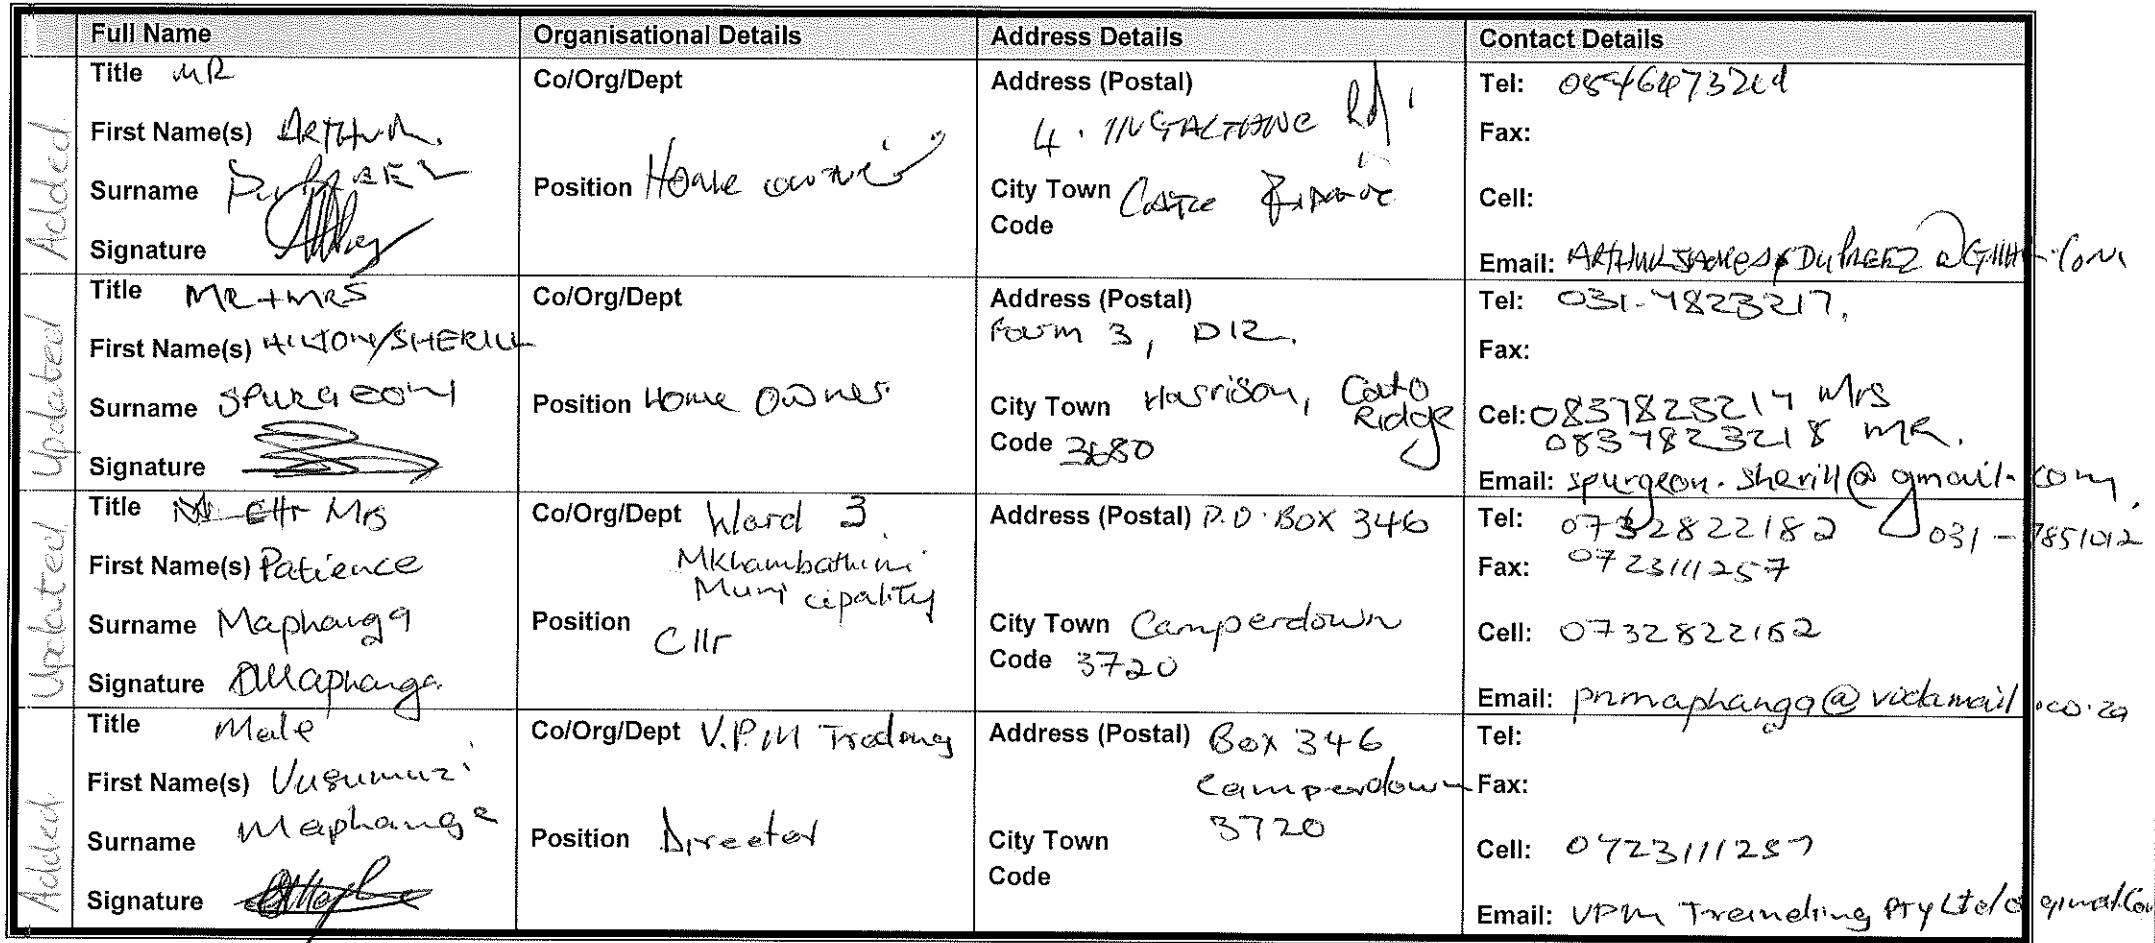 Full Name Organisational Details Address Details Contact Details
Added
Title MR
First Name(s) ARTHUR
Surname
Signature
Co/Org/Dept
Position Home owner
Address (Postal)
4.
Rd
City Town
Code
Tel:
Fax:
Cell:
Email:
Updated
Title MR + MRS
First Name(s) HILTON/SHERILL
Surname SPURGEON
Signature
Co/Org/Dept
Position Home Owner
Address (Postal)
Farm 3, D12.
City Town Harrison, Cato
Ridge
Code 3680
Tel: 031-7823217.
Fax:
Cel: 0837823217 Mrs
0837823218 MR.
Email: spurgeon.sherill@gmail.com
Updated
Title Cllr Mrs
First Name(s) Patience
Surname Maphanga
Signature PMaphanga
Co/Org/Dept Ward 3
Mkhambathini
Municipality
Position
Cllr
Address (Postal) P.O. BOX 346
City Town Camperdown
Code 3720
Tel: 0732822182 031-7851012
Fax: 0723111257
Cell: 0732822182
Email: pnmaphanga@vodamail.co.za
Added
Title Male
First Name(s) Vusumuzi
Surname Maphanga
Signature
Co/Org/Dept V.P.M Trading
Position Director
Address (Postal) Box 346
Camperdown
3720
City Town
Code
Tel:
Fax:
Cell: 0723111257
Email: VPM